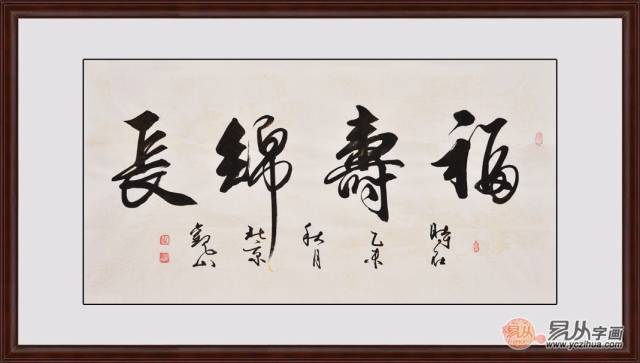 福壽綿長
時在乙未秋月北京觀山
易从字画
www.yczihua.com